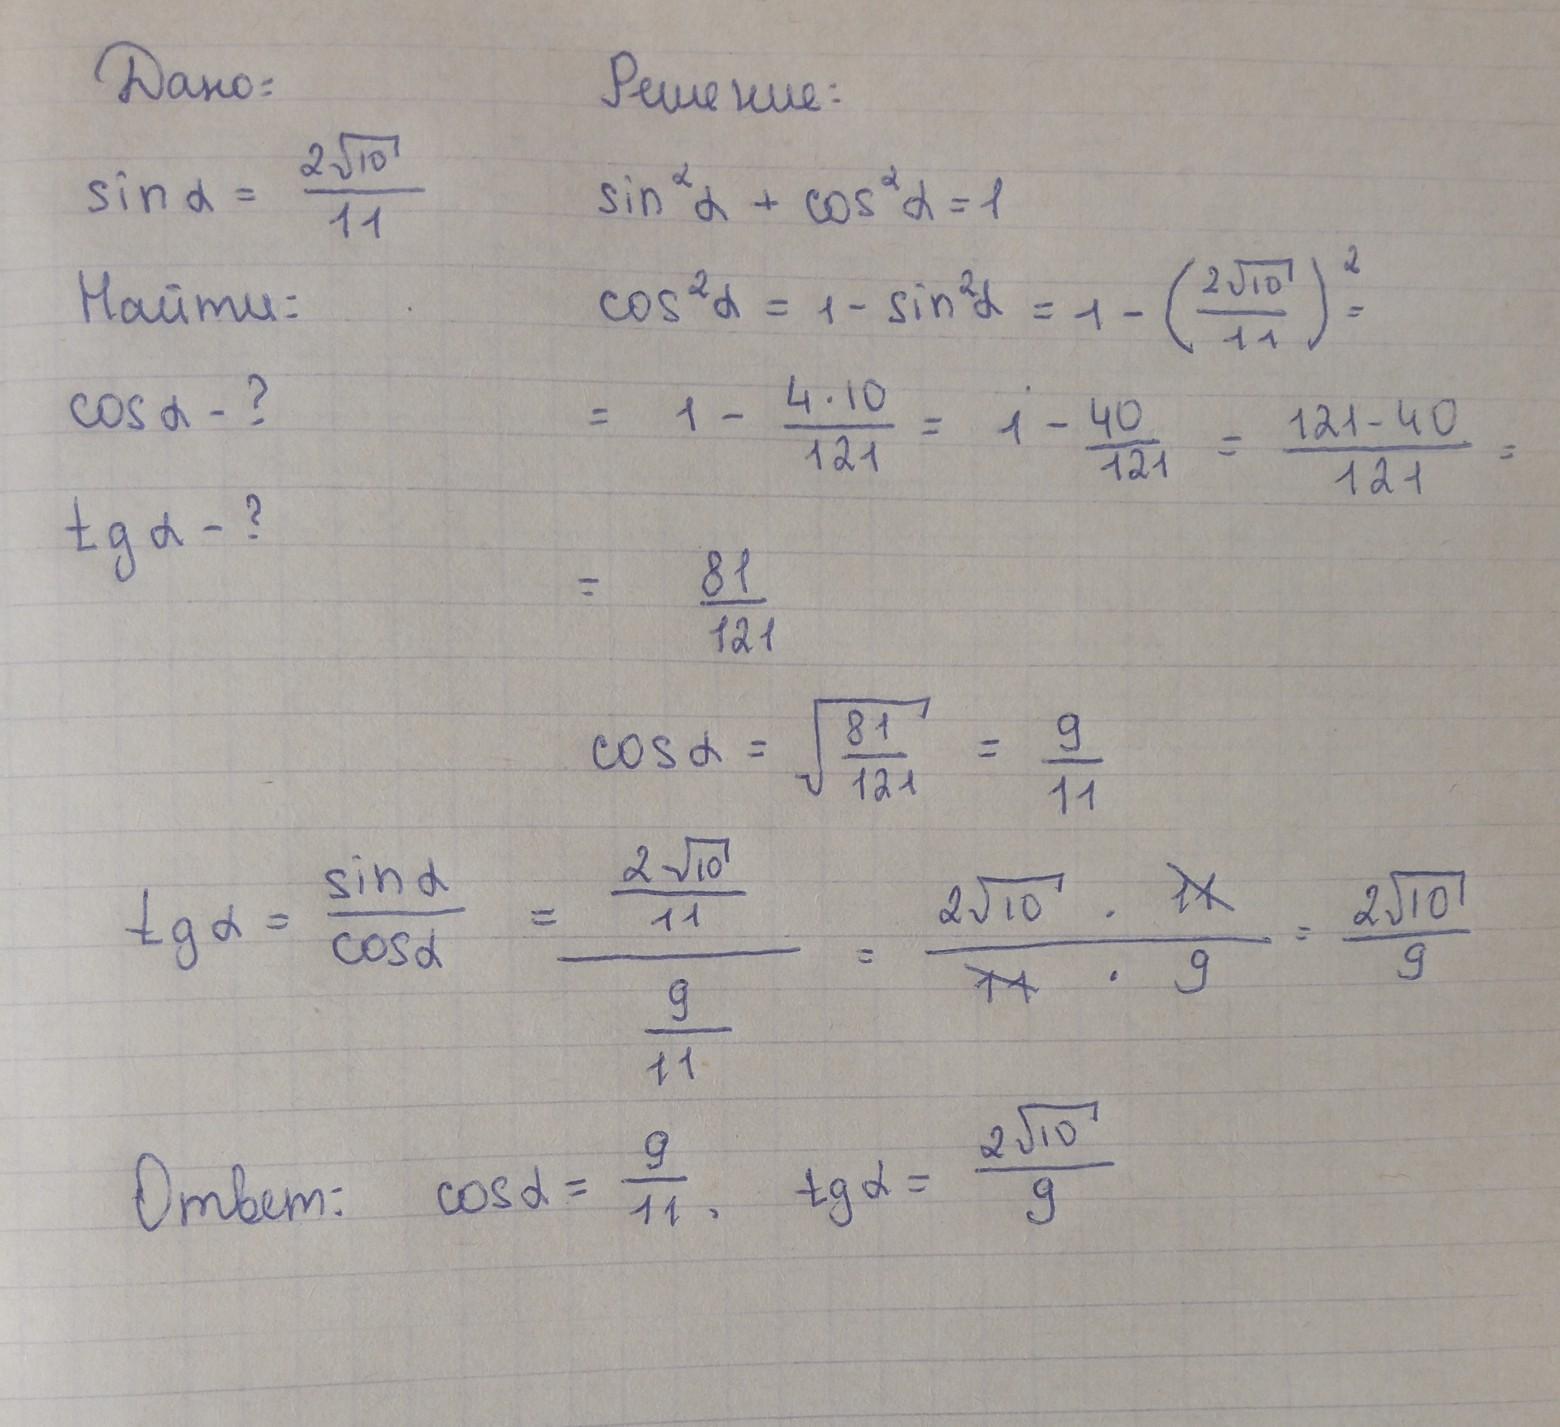 Дано:
sin α = 2√10/11
Найти:
cos α - ?
tg α - ?
Решение:
sin²α + cos²α = 1
cos²α = 1 - sin²α = 1 - (2√10/11)² =
= 1 - 4·10/121 = 1 - 40/121 = 121-40/121 =
= 81/121
cos α = √81/121 = 9/11
tg α = sin α/cos α = 2√10/11 / 9/11 = 2√10 · 11/11 · 9 = 2√10/9
Ответ: cos α = 9/11, tg α = 2√10/9